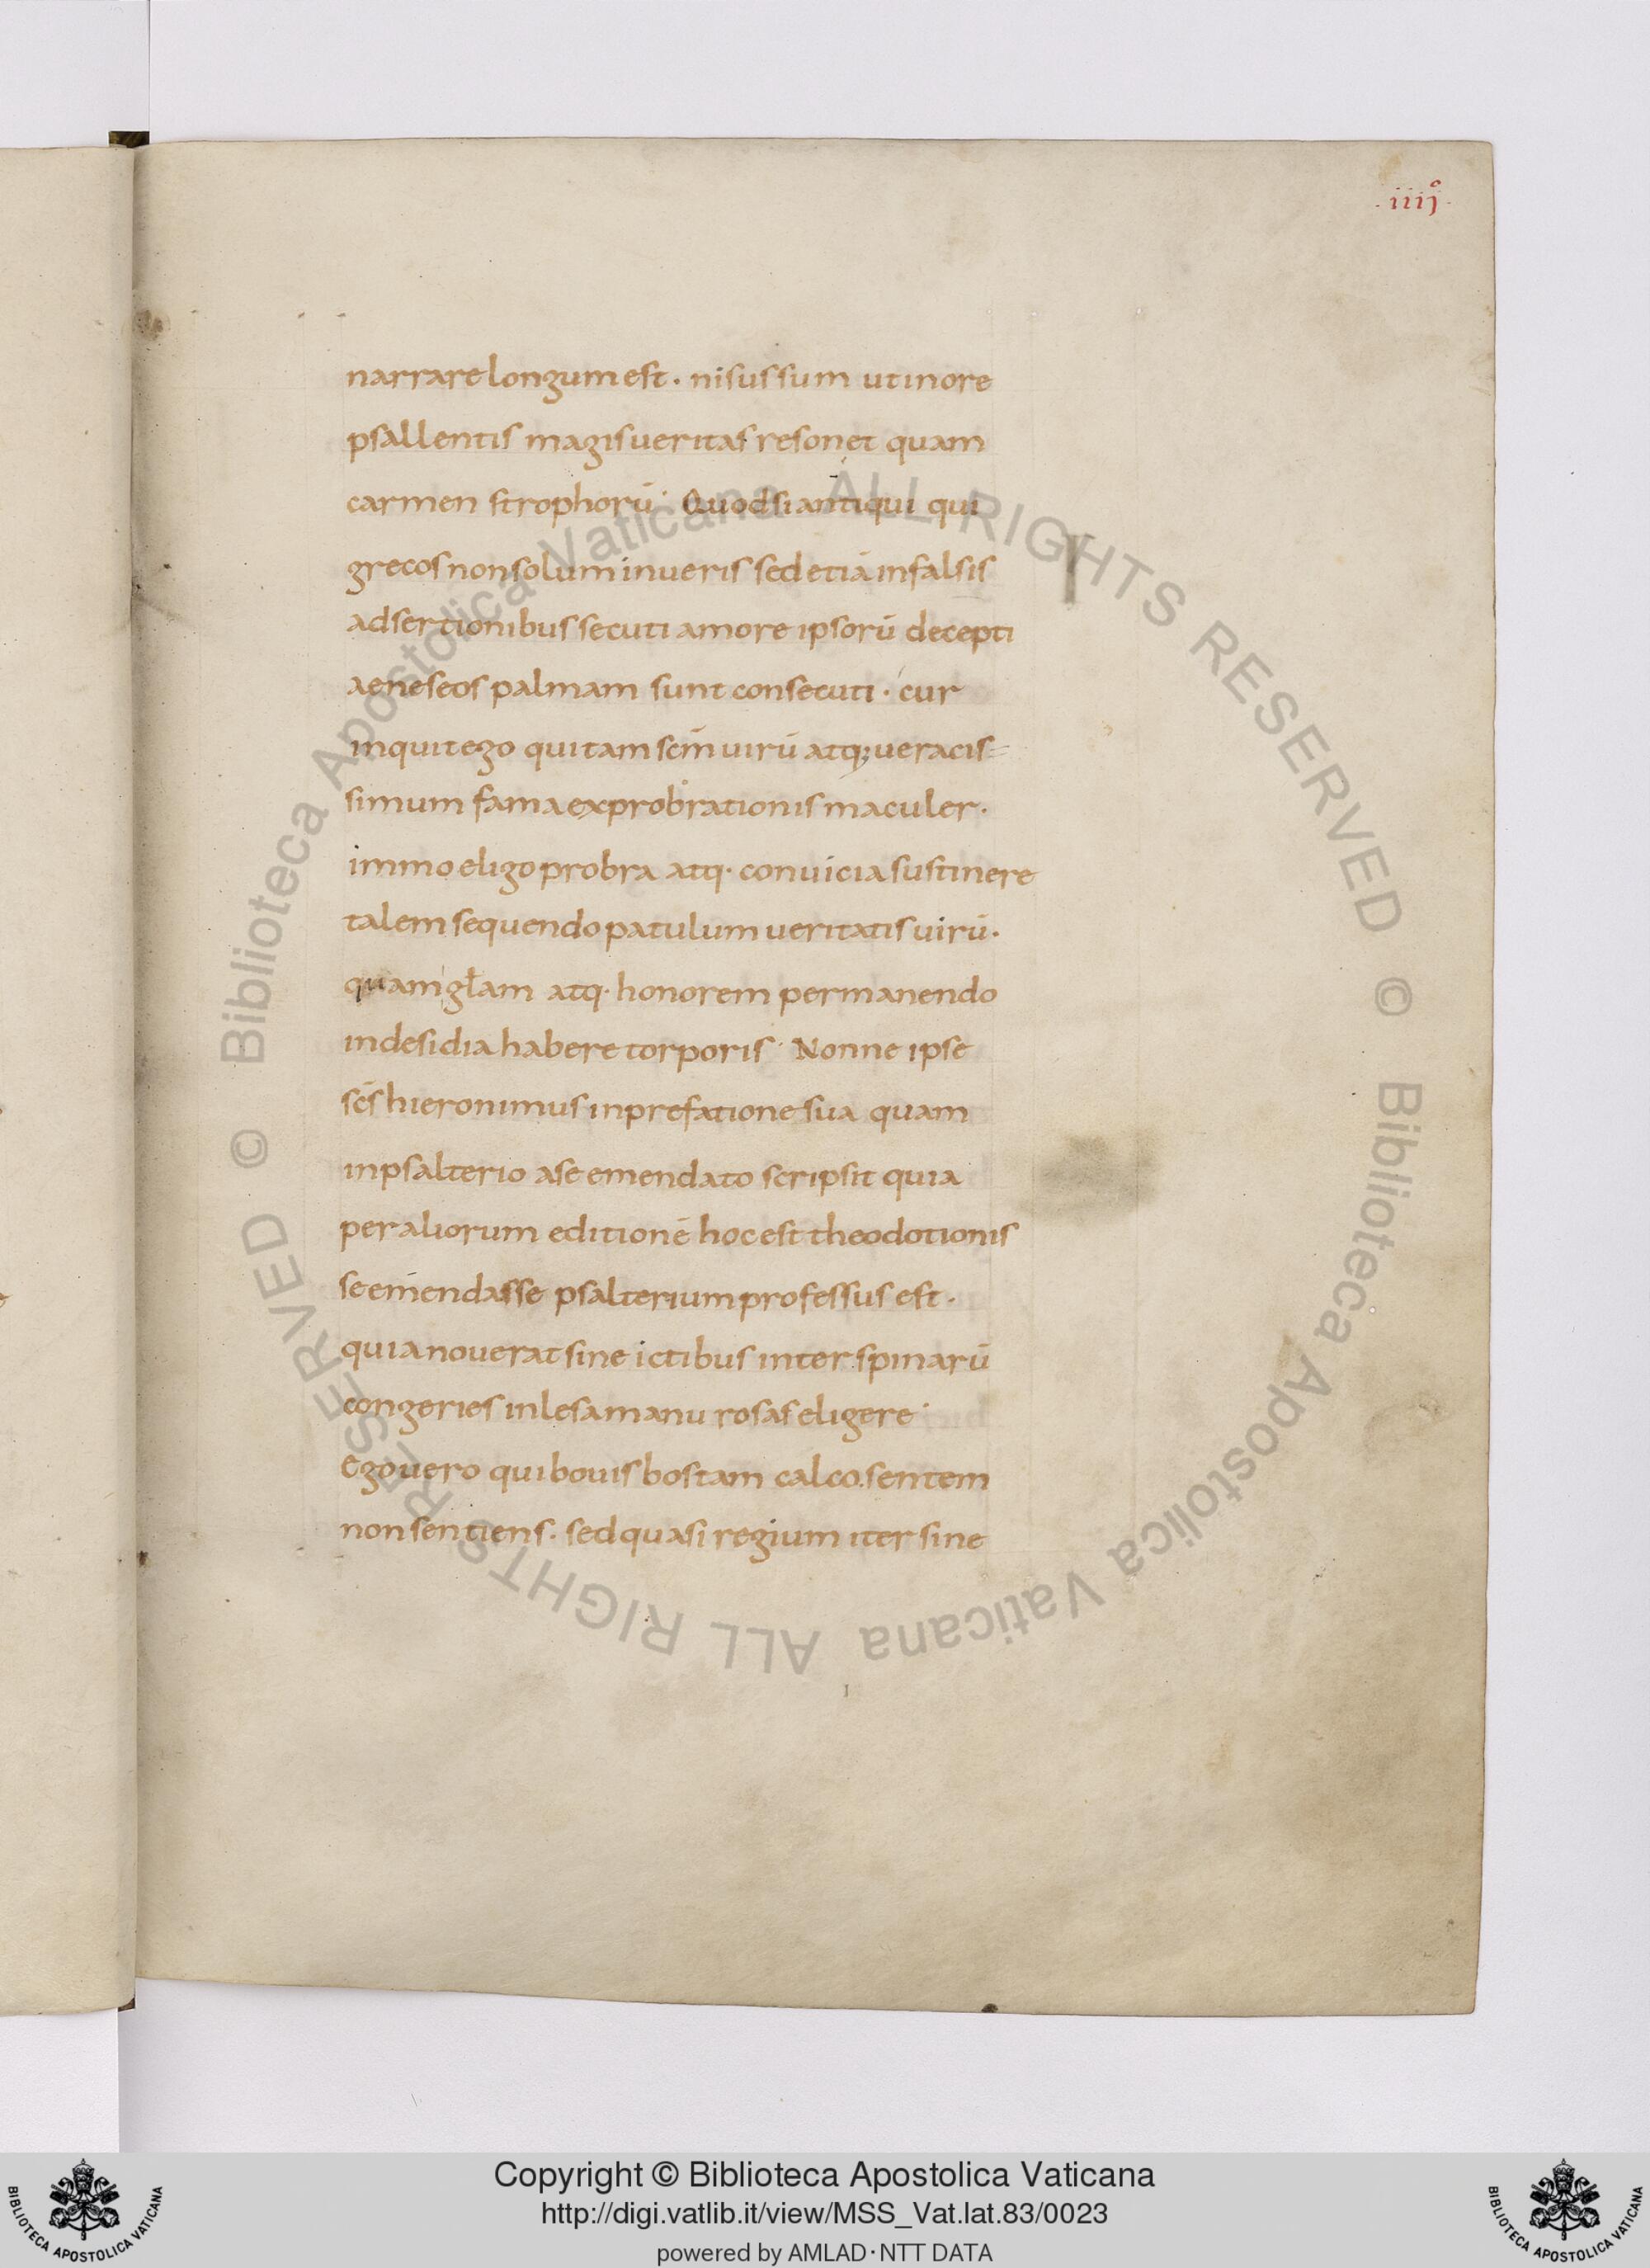 .iiij°.
narrare longum est. nisus sum ut in ore
psallentis magis ueritas resonet quam
carmen strophorū. Quod si antiqui qui
grecos non solum in ueris sed etiā in falsis
adsertionibus secuti amore ipsorū decepti
aeneseos palmam sunt consecuti. cur
inquit ego qui tam scm̄ uirū atq; ueracis=
simum fama exprobrationis maculer.
immo eligo probra atq. conuicia sustinere
talem sequendo patulum ueritatis uirū.
quam gl̄am atq. honorem permanendo
in desidia habere torporis. Nonne ipse
scs̄ hieronimus in prefatione sua quam
in psalterio a se emendato scripsit quia
per aliorum editionē hoc est theodotionis
se emendasse psalterium professus est.
quia nouerat sine ictibus inter spinarū
congeries inlesa manu rosas eligere.
Ego uero qui bouis bostam calco. sentem
non sentiens. sed quasi regium iter sine
© Biblioteca Apostolica Vaticana ALL RIGHTS RESERVED
© Biblioteca Apostolica Vaticana ALL RIGHTS RESERVED
Copyright © Biblioteca Apostolica Vaticana
http://digi.vatlib.it/view/MSS_Vat.lat.83/0023
powered by AMLAD·NTT DATA
BIBLIOTECA APOSTOLICA VATICANA
BIBLIOTECA APOSTOLICA VATICANA